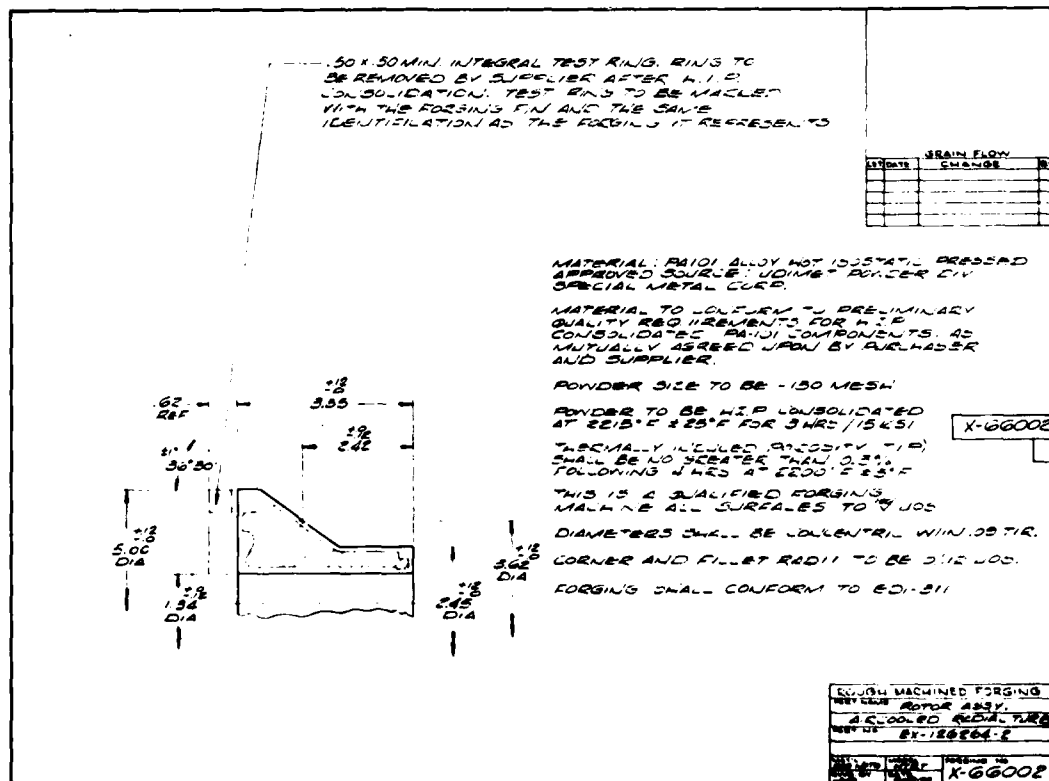 .50 X .50 MIN. INTEGRAL TEST RING. RING TO
BE REMOVED BY SUPPLIER AFTER H.I.P.
CONSOLIDATION. TEST RING TO BE MARKED
WITH THE FORGING P/N AND THE SAME
IDENTIFICATION AS THE FORGING IT REPRESENTS
GRAIN FLOW
LET DATE CHANGE
MATERIAL: PA101 ALLOY HOT ISOSTATIC PRESSED
APPROVED SOURCE: UDIMET POWDER DIV
SPECIAL METAL CORP.
MATERIAL TO CONFORM TO PRELIMINARY
QUALITY REQUIREMENTS FOR H.I.P
CONSOLIDATED PA-101 COMPONENTS. AS
MUTUALLY AGREED UPON BY PURCHASER
AND SUPPLIER.
POWDER SIZE TO BE -150 MESH
POWDER TO BE H.I.P CONSOLIDATED
AT 2215°F ±25°F FOR 3 HRS / 15 KSI
X-66002
THERMALLY INDUCED POROSITY (T.I.P.)
SHALL BE NO GREATER THAN
FOLLOWING 4 HRS AT 2200°F ±5°F
THIS IS A QUALIFIED FORGING
MACHINE ALL SURFACES TO
DIAMETERS SHALL BE CONCENTRIC W/IN .05 TIR.
CORNER AND FILLET RADII TO BE
FORGING SHALL CONFORM TO EDI-311
.62
REF
3.55
2.42
±1°
36°30'
5.00
DIA
1.34
DIA
2.45
DIA
3.62
DIA
ROUGH MACHINED FORGING
PART NAME ROTOR ASSY.
AIRCOOLED RADIAL TURB
PART NO EX-126264-2
FORGING NO
X-66002